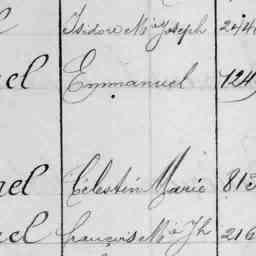 Isidore Mie Joseph 244
el Emmanuel 124
el Célestin Marie 813
el François M a Jh 216